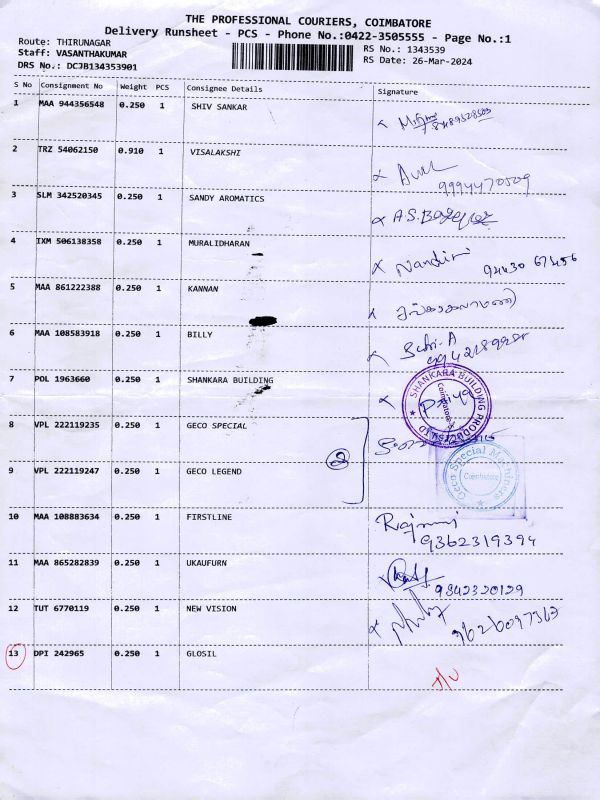 THE PROFESSIONAL COURIERS, COIMBATORE
Delivery Runsheet - PCS - Phone No.:0422-3505555 - Page No.:1
Route: THIRUNAGAR RS No.: 1343539
Staff: VASANTHAKUMAR RS Date: 26-Mar-2024
DRS No.: DCJB134353901
S No Consignment No Weight PCS Consignee Details Signature
1 MAA 944356548 0.250 1 SHIV SANKAR
2 TRZ 54062150 0.910 1 VISALAKSHI
9994470509
3 SLM 342520345 0.250 1 SANDY AROMATICS
4 IXM 506138358 0.250 1 MURALIDHARAN Nandini 94430 67456
5 MAA 861222388 0.250 1 KANNAN
6 MAA 108583918 0.250 1 BILLY
7 POL 1963660 0.250 1 SHANKARA BUILDING Priya
SHANKARA BUILDING PRODUCTS
8 VPL 222119235 0.250 1 GECO SPECIAL
2
Geco Special Machines
Coimbatore
9 VPL 222119247 0.250 1 GECO LEGEND
10 MAA 108883634 0.250 1 FIRSTLINE
9362319394
11 MAA 865282839 0.250 1 UKAUFURN
9842320129
12 TUT 6770119 0.250 1 NEW VISION
13 DPI 242965 0.250 1 GLOSIL